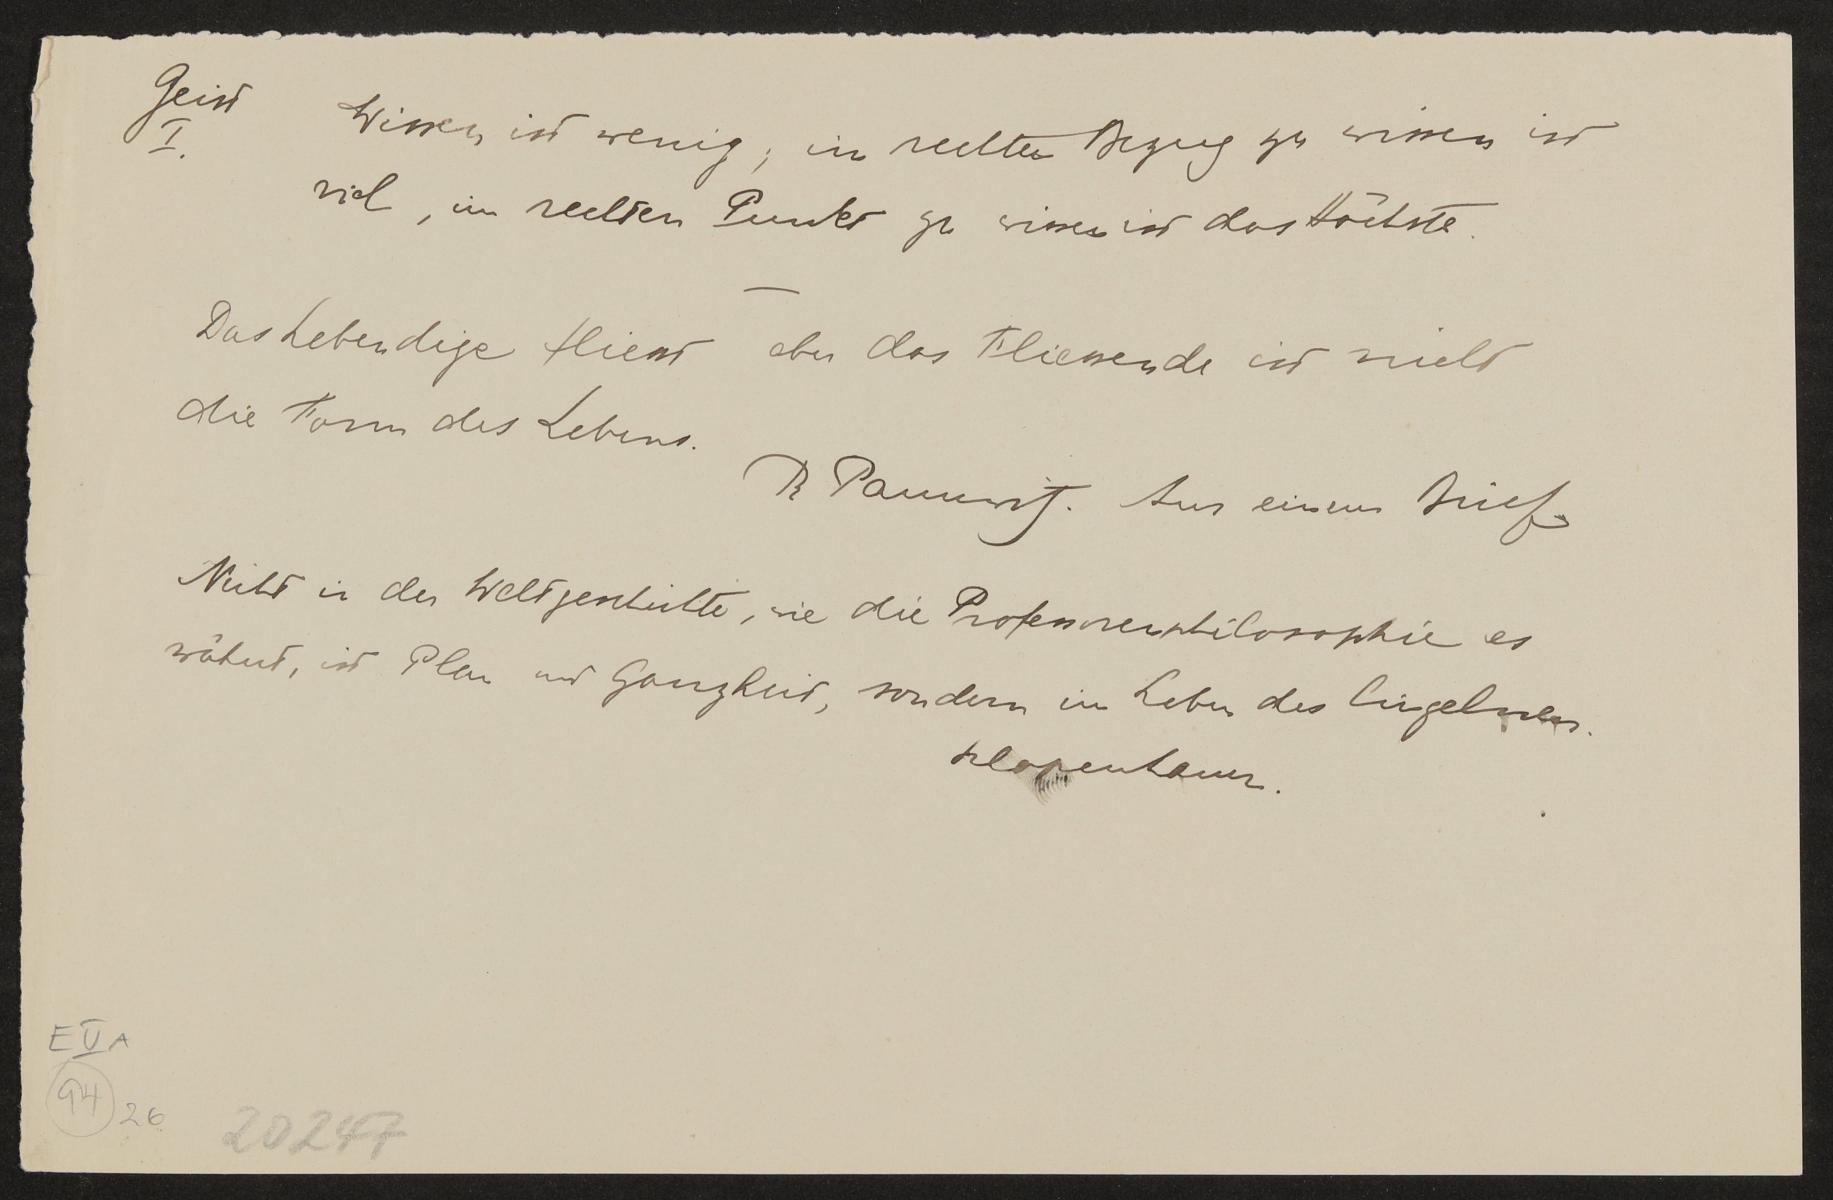 Geist
I.
Wissen ist wenig; im rechten Bezug zu wissen ist
viel, im rechten Punkt zu wissen ist das Höchste.
—
Das Lebendige fliesst aber das Fliessende ist nicht
die Form des Lebens.
R Pannwitz. Aus einem Brief
Nicht in der Weltgeschichte, wie die Professorenphilosophie es
wähnt, ist Plan und Ganzheit, sondern im Leben des Einzelnen.
Schopenhauer.
E V A
94 26
20247